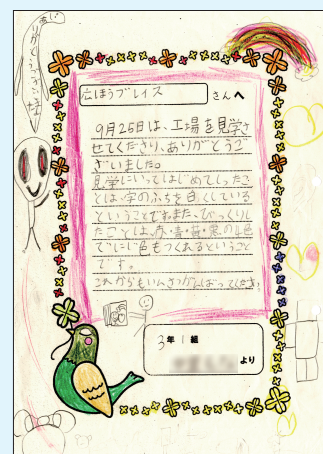 広ほうブレイス さんへ
9月25日は、工場を見学さ
せてくださり、ありがとうご
ざいました。
見学にいってはじめてしったこ
とは、字のふちを白くしている
ということです。また、びっくりし
たことは、赤・青・黄・黒の4色
でにじ色もつくれるということ
です。
これからもいんさつがんばってください。
3年1組
より